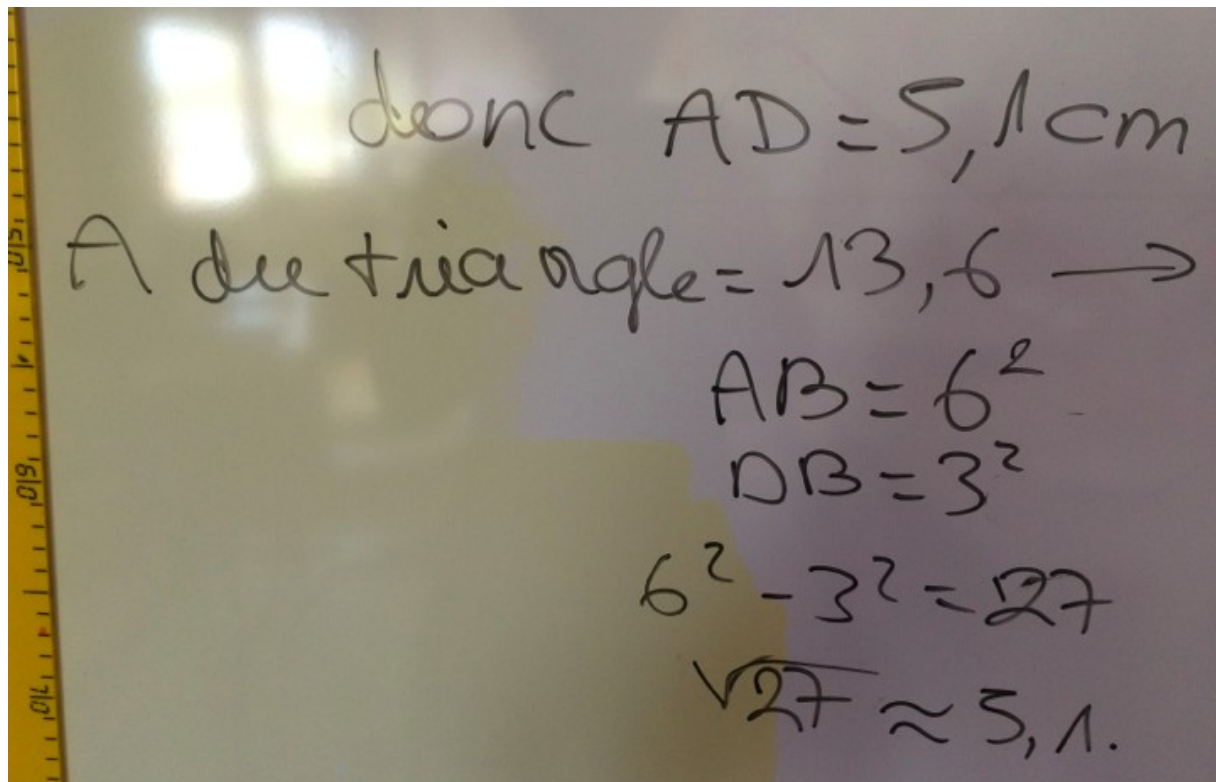 donc AD = 5,1 cm
A du triangle = 13,6 →
AB = 6²
DB = 3²
6² - 3² = 27
√27 ≈ 5,1.